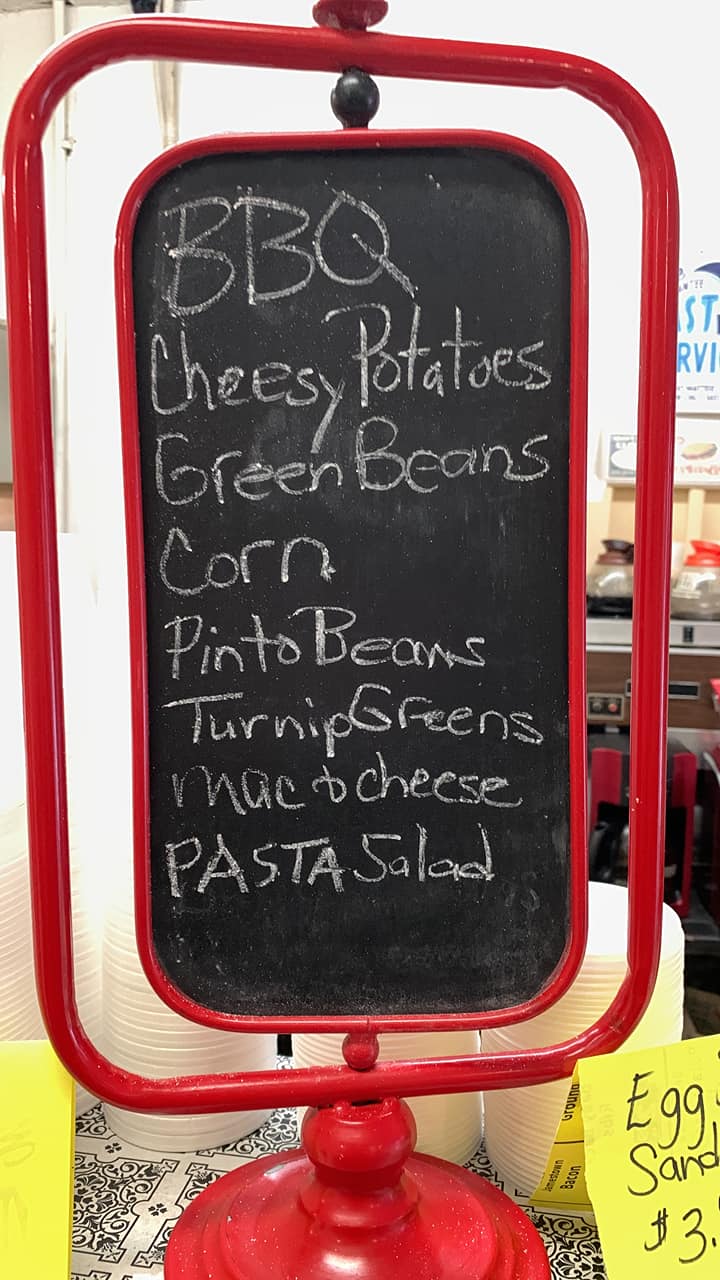 BBQ
Cheesy Potatoes
Green Beans
Corn
Pinto Beans
Turnip Greens
mac & cheese
PASTA Salad
Egg
Sand
$3.
Ground
Jamestown
Bacon